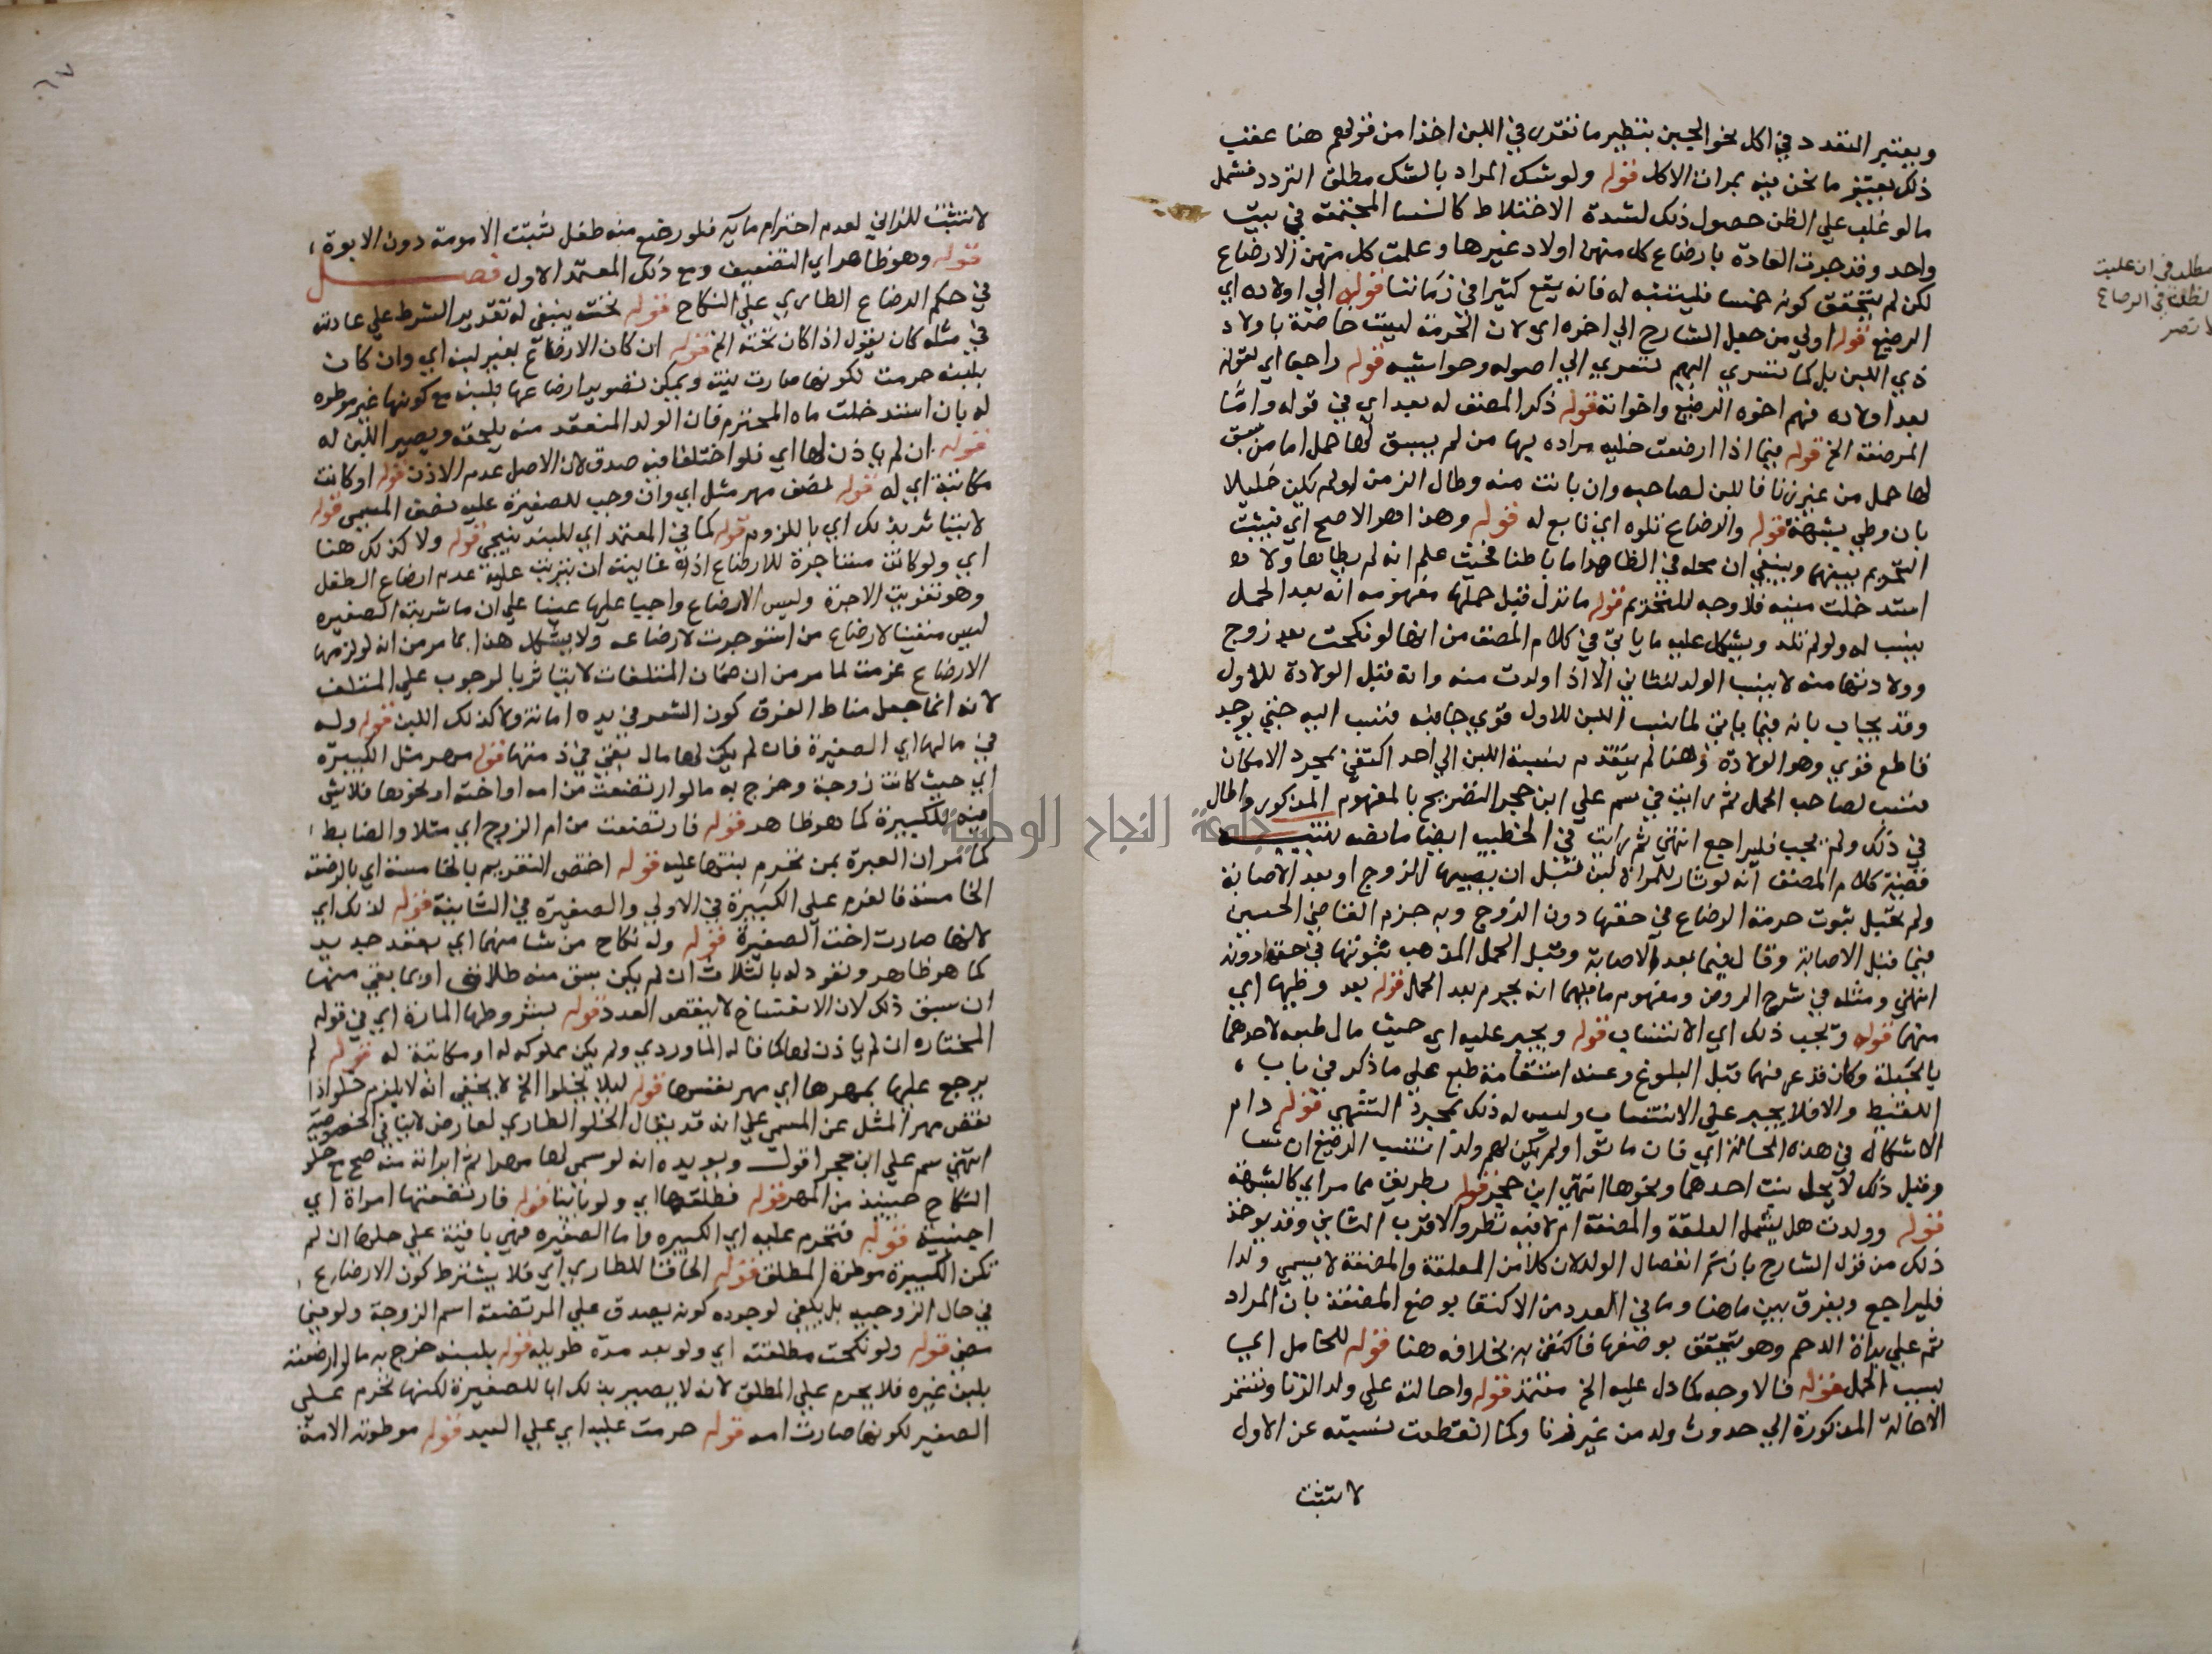 ويعتبر التعدد في اكل نحو الجبن بنظير ما تقرر في اللبن اخذا من قولهم هنا عقب
ذلك يعتبر ما نحن فيه بمرات الاكل قوله ولو شك المراد بالشك مطلق التردد فشمل
ما لو غلب علي الظن حصول ذلك لشدة الاختلاط كالنسا المجتمعة في بيت
واحد وقد جرت العادة بارضاع كل منهن اولاد غيرها وعلمت كل منهن الارضاع
لكن لم يتحقق كونه خمسا فليتنبه له فانه يقع كثيرا في زماننا قوله الي اولاده اي
الرضيع قوله اولي من جعل الشارح الي اخره اي لان الحرمة ليست خاصة باولاد
ذي اللبن بل كما تسري اليهم تسري الي اصوله وحواشيه قوله راجعا اي لقوله
بعد اولاده فهم اخوة الرضيع واخواته قوله ذكر المصنف له بعد اي في قوله واما
المرضعة الخ قوله فيما اذا ارضعت خليه مراده بها من لم يسبق لها حمل اما من سبق
لها حمل من غير زنا فاللبن لصاحبه وان بانت منه وطال الزمن او لم يكن حليلا
بان وطي بشبهة قوله والارضاع تلوه اي تابع له قوله وهذا هو الاصح اي فيثبت
التحريم بينهما وينبغي ان محله في الظاهر اما باطنا فحيث علم انه لم يطاها ولا
استدخلت منيه فلا وجه للتحريم قوله ما نزل قبل حملها مفهومه انه بعد الحمل
ينسب له ولو لم تلد ويشكل عليه ما ياتي في كلام المصنف من انها لو نكحت بعد زوج
وولادتها منه لا ينسب الولد للثاني الا اذا ولدت منه وانه قبل الولادة للاول
وقد يجاب بانه فيما ياتي لما نسب اللبن للاول قوي جانبه فنسب اليه حتي يوجد
قاطع قوي وهو الولادة وهنا لم يتقدم نسبة اللبن الي احد اكتفي بمجرد الامكان
فنسب لصاحب الحمل ثم رايت في سم علي ابن حجر التصريح بالمفهوم المذكور واطال
في ذلك ولم يجب فليراجع انتهي ثم رايت في الخطيب ايضا ما نصه تنبيه
قضية كلام المصنف انه لو ثار للمراة لبن قبل ان يصيبها الزوج او بعد الاصابة
ولم تحبل ثبوت حرمة الرضاع في حقها دون الزوج وبه جزم القاضي الحسين
فيما قبل الاصابة وقال فيما بعد الاصابة وقبل الحمل المذهب ثبوتها في حقها دونه
انتهي ومثله في شرح الروض ومفهوم ما قبلهما انه يحرم بعد الحمل قوله بعد وطيها اي
منهما قوله وتجب ذلك اي الانتساب قوله ويجبر عليه اي حيث مال طبعه لاحدهما
بالجبلة وكان قد عرفهما قبل البلوغ وعند استقامة طبع علي ما ذكر في باب
اللقيط والا فلا يجبر علي الانتساب وليس له ذلك بمجرد التشهي قوله دام
الاشكال في هذه الحالة اي فان ماتوا ولم يكن لهم ولد انتسب الرضيع ان شا
وقبل ذلك لا يحل بنت احدهما ونحوها انتهي ابن حجر قوله بطريق مما مر اي كالشبهة
قوله وولدت هل يشمل العلقة والمضغة ام لا فيه نظر والاقرب الثاني وقد يوخذ
ذلك من قول الشارح بان تم انفصال الولد لان كلا من العلقة والمضغة لا يسمي ولدا
فليراجع ويفرق بين ما هنا وما في العدد من الاكتفا بوضع المضغة بان المراد
ثم علي براة الرحم وهو يتحقق بوضعها فاكتفي به بخلافه هنا قوله للحامل اي
بسبب الحمل قوله فالاوجه كما دل عليه الخ معتمد قوله واحالته علي ولد الزنا وتستمر
الاحالة المذكورة الي حدوث ولد من غير زنا ولما انقطعت نسبته عن الاول
لا تثبت
مطلب في ان غلبت
لظن في الرضاع
لا تصر
لا تثبت للزاني لعدم احترام مايه فلو رضع منه طفل ثبتت الامومة دون الابوة
قوله وهو ظاهر اي التضعيف ومع ذلك المعتمد الاول فصل
في حكم الرضاع الطاري علي النكاح قوله تحته ينبغي له تقدير الشرط علي عادته
في مثله كان يقول اذا كان تحته الخ قوله ان كان الارضاع بغير لبنه اي وان كان
بلبنه حرمت لكونها صارت بنته ويمكن تصوير ارضاعها بلبنه مع كونها غير موطوه
له بان استدخلت ماه المحترم فان الولد المنعقد منه يلحقه ويصير اللبن له
قوله ان لم ياذن لها اي فلو اختلفا فيه صدق لان الاصل عدم الاذن قوله او كانت
مكاتبة اي له قوله نصف مهر مثل اي وان وجب للصغيرة عليه نصف المسمي قوله
لا يتاثر بذلك اي باللزوم قوله كما في المعتمد اي للبندنيجي قوله ولا كذلك هنا
اي ولو كانت مستاجرة للارضاع اذ غايته ان يترتب عليه عدم ارضاع الطفل
وهو تفويت الاجرة وليس الارضاع واجبا عليها عينا علي ان ما شربته الصغيره
ليس متعينا لارضاع من استوجرت لارضاعه ولا يشكل هذا بما مر من انه لو لزمها
الارضاع غرمت لما مر من ان ضمان المتلفات لا يتاثر بالوجوب علي المتلف
لانه انما جعل مناط الفرق كون الشعر في يده امانة ولا كذلك اللبن قوله وله
في مالها اي الصغيرة فان لم يكن لها مال بقي في ذمتها قوله مهر مثل الكبيرة
اي حيث كانت زوجة وخرج به ما لو ارتضعت من امه او اخته او نحوها فلا شي
فيه للكبيرة كما هو ظاهر قوله فارتضعت من ام الزوج اي مثلا والضابط
كما مر ان العبرة بمن تحرم بنتها عليه قوله اختص التغريم بالخامسة اي بالرضعة
الخامسة فالغرم علي الكبيرة في الاولي والصغيرة في الثانية قوله لذلك اي
لانها صارت اخت الصغيرة قوله وله نكاح من شا منهما اي بعقد جديد
كما هو ظاهر وتعود له بالثلاث ان لم يكن سبق منه طلاق او بما بقي منها
ان سبق ذلك لان الانفساخ لا ينقص العدد قوله بشروطها المارة اي في قوله
المختاره ان لم ياذن لها كما قاله الماوردي ولم يكن مملوكه له او مكاتبة له قوله لم
يرجع عليها بمهرها اي مهر نفسها قوله ليلا يخلوا الخ لا يخفي انه لا يلزم خلو اذا
نقص مهر المثل عن المسمي علي انه قد يقال الخلو الطاري لعارض لا ينافي الخصوصية
انتهي سم علي ابن حجر اقول ويويده انه لو سمي لها مهرا ثم ابراته منه صح مع خلو
النكاح حينيذ من المهر قوله فطلقها اي ولو باينا قوله فارتضعتها امراة اي
اجنبية قوله فتحرم عليه اي الكبيره واما الصغيره فهي باقية علي حلها ان لم
تكن الكبيرة موطوة المطلق قوله الحاقا للطاري اي فلا يشترط كون الارضاع
في حال الزوجيه بل يكفي لوجوده كونه يصدق علي المرتضعة اسم الزوجة ولو فيما
مضي قوله ولو نكحت مطلقته اي ولو بعد مدة طويله قوله بلبنه خرج به ما لو ارضعته
بلبن غيره فلا يحرم علي المطلق لانه لا يصير بذلك ابا للصغيرة لكنها تحرم علي
الصغير لكونها صارت امه قوله حرمت عليه اي علي السيد قوله موطوته الامة
جامعة النجاح الوطنية